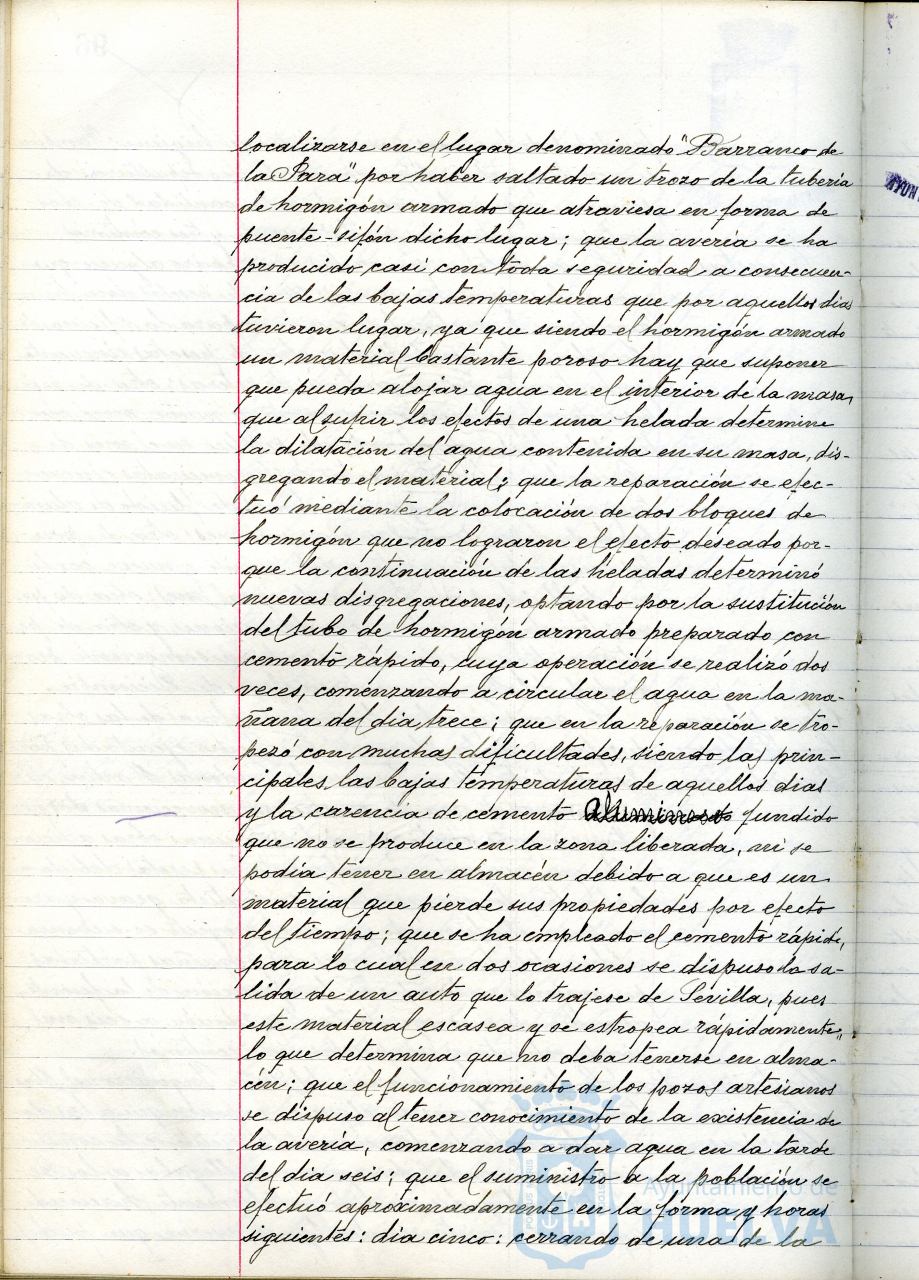 localizarse en el lugar denominado "Barranco de
la Para" por haber saltado un trozo de la tuberia
de hormigón armado que atraviesa en forma de
puente-sifón dicho lugar; que la avería se ha
producido casi con toda seguridad a consecuen-
cia de las bajas temperaturas que por aquellos dias
tuvieron lugar, ya que siendo el hormigón armado
un material bastante poroso hay que suponer
que pueda alojar agua en el interior de la masa,
que al sufrir los efectos de una helada determine
la dilatación del agua contenida en su masa, dis-
gregando el material; que la reparación se efec-
tuó mediante la colocación de dos bloques de
hormigón que no lograron el efecto deseado por-
que la continuación de las heladas determinó
nuevas disgregaciones, optando por la sustitución
del tubo de hormigón armado preparado con
cemento rápido, cuya operación se realizó dos
veces, comenzando a circular el agua en la ma-
ñana del dia trece; que en la reparación se tro-
pezó con muchas dificultades, siendo las prin-
cipales las bajas temperaturas de aquellos dias
y la carencia de cemento aluminoso fundido
que no se produce en la zona liberada, ni se
podía tener en almacén debido a que es un
material que pierde sus propiedades por efecto
del tiempo; que se ha empleado el cemento rápido,
para lo cual en dos ocasiones se dispuso la sa-
lida de un auto que lo trajese de Sevilla, pues
este material escasea y se estropea rápidamente,
lo que determina que no deba tenerse en alma-
cén; que el funcionamiento de los pozos artesianos
se dispuso al tener conocimiento de la existencia de
la avería, comenzando a dar agua en la tarde
del dia seis; que el suministro a la población se
efectuó aproximadamente en la forma y horas
siguientes: dia cinco: cerrando de una de la
Ayuntamiento de
HUELVA